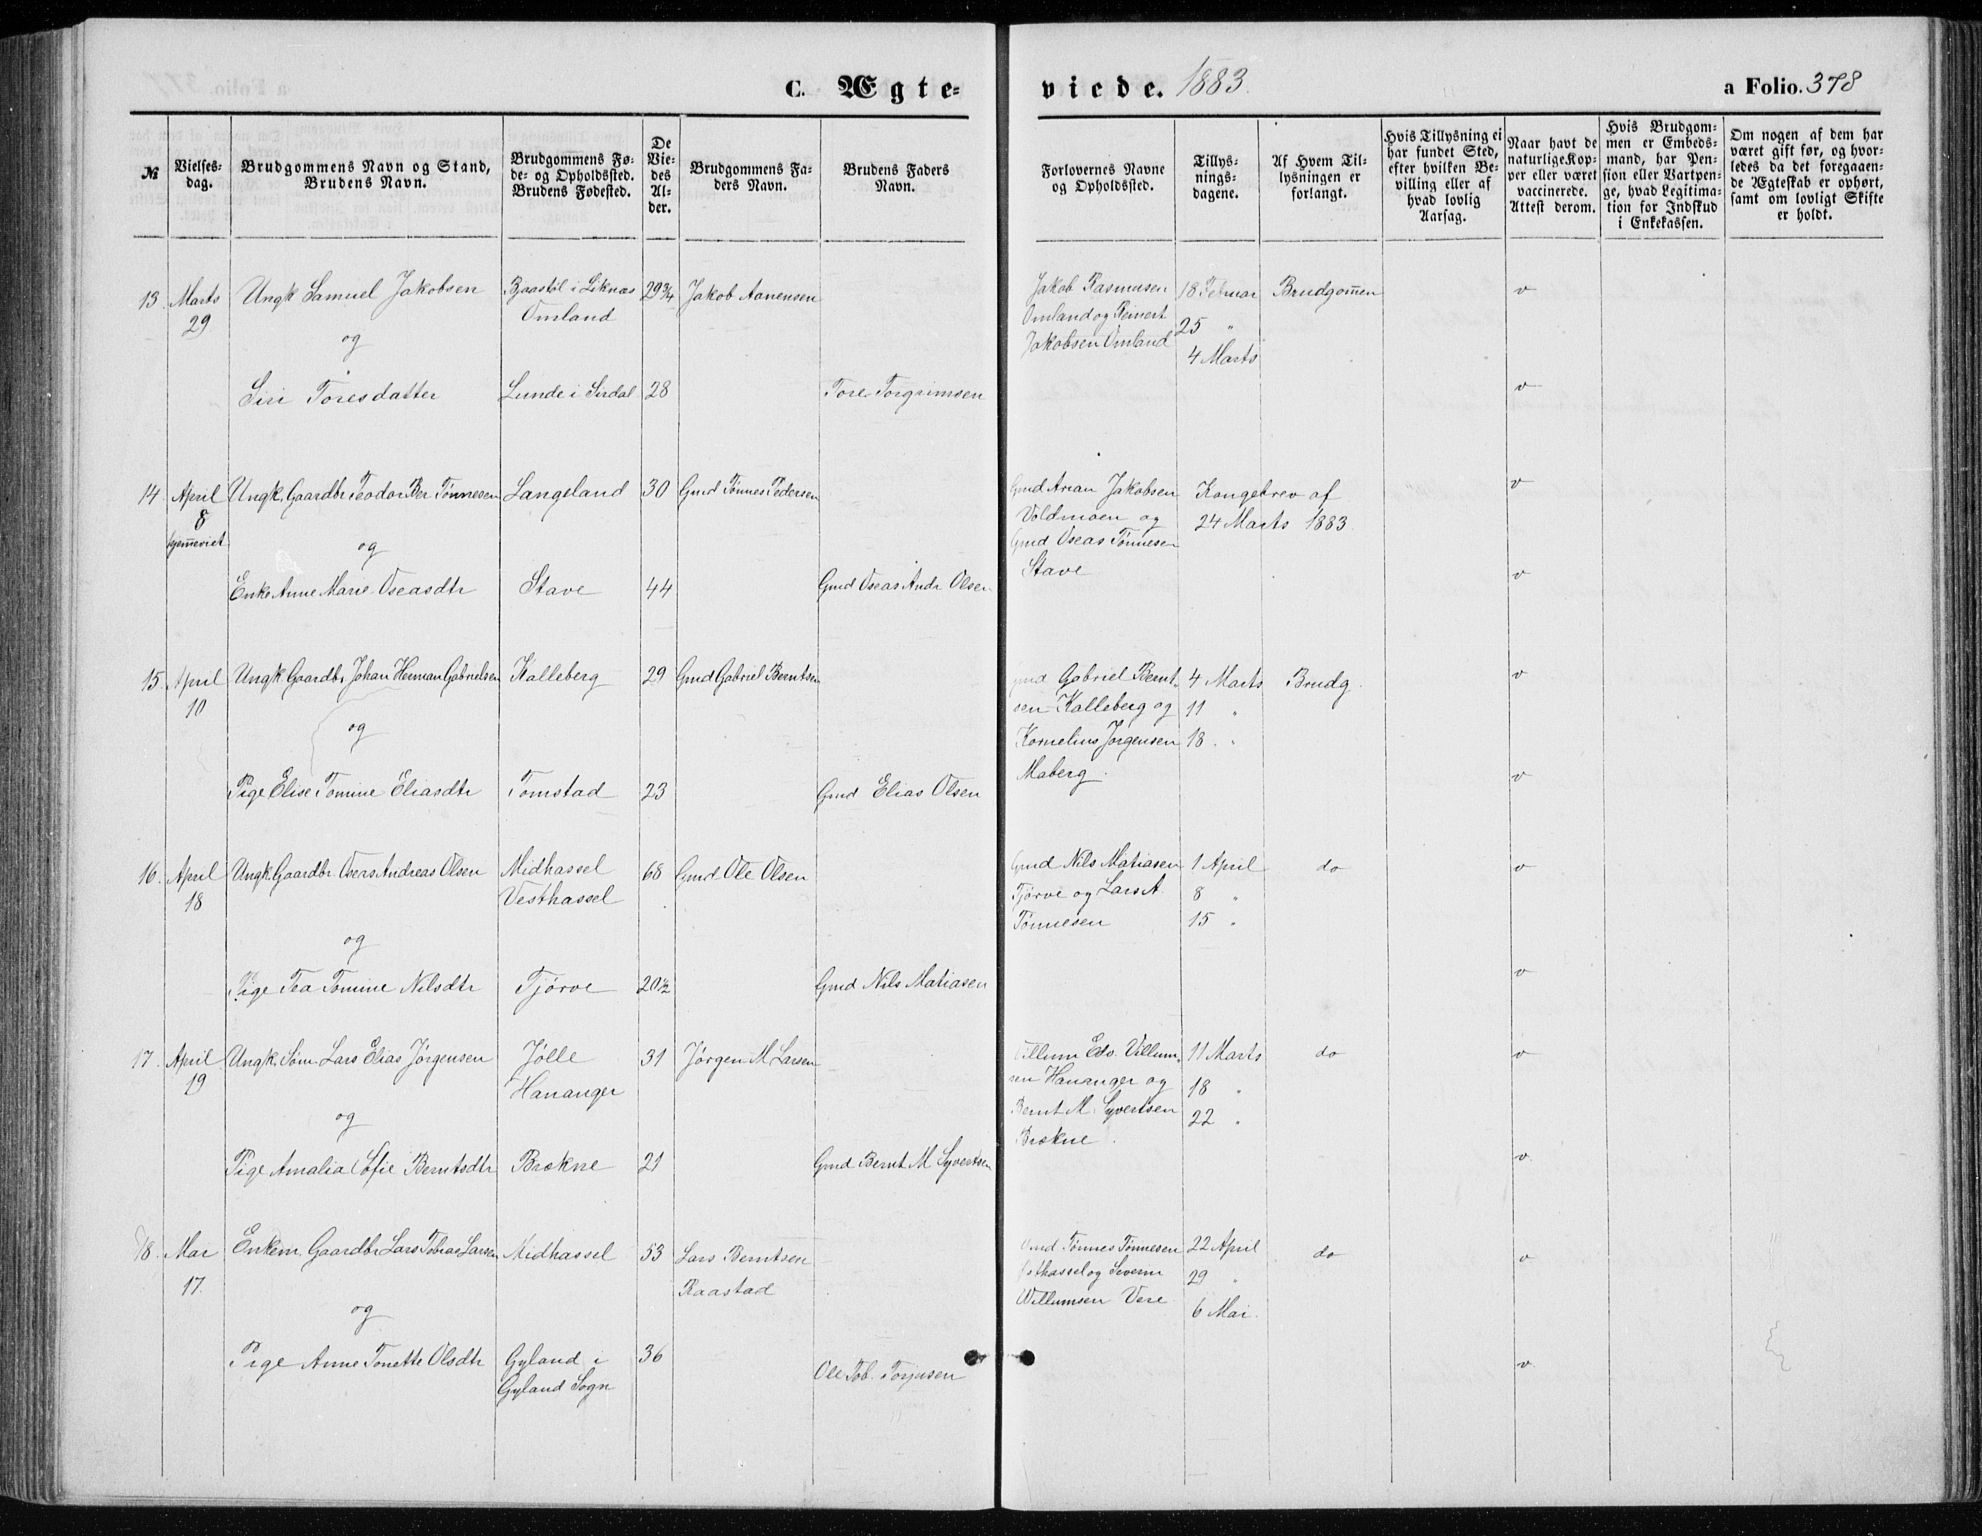 C. Ægte-
viede. 1883.
a Folio. 378
№
Vielses-
dag.
Brudgommens Navn og Stand,
Brudens Navn.
Brudgommens Fø-
de- og Opholdssted.
Brudens Fødested.
De
Vie-
des
Al-
der.
Brudgommens Fa-
ders Navn.
Brudens Faders
Navn.
Forlovernes Navne
og Opholdssted.
Tillys-
nings-
dagene.
Af Hvem Til-
lysningen er
forlangt.
Hvis Tillysning ei
har fundet Sted,
efter hvilken Be-
villing eller af
hvad lovlig
Aarsag.
Naar havt de
naturlige Kop-
per eller været
vaccinerede.
Attest derom.
Hvis Brudgom-
men er Embeds-
mand, har Pen-
sion eller Vartpen-
ge, hvad Legitima-
tion for Indskud
i Enkekassen.
Om nogen af dem har
været gift før, og hvor-
ledes da det foregaaen-
de Ægteskab er ophørt,
samt om lovligt Skifte
er holdt.
13 Marts Ungk Samuel Jakobsen Bjaastøl i Liknæs 29 3/4 Jakob Aanensen Jakob Rasmusen 18 Februar Brudgom̅en v
29 Omland Omland og Reinert 25 "
og Jakobsen Omland 4 Marts
Siri Toresdatter Lunde i Sirdal 28 Tore Torgrimsen v
14. April Ungk. Gaardbr Teodor Ber Tønnesen Langeland 30 Gmd Tønnes Pedersen Gmd Arian Jakobsen Kongebrev af v
8 Voldmoen og 24 Marts 1883.
hjem̅eviet og Gmd Oseas Tønnesen
Stave
Enke Anne Marie Oseasdtr Stave 44 Gmd Oseas Andr Olsen v
15. April Ungk Gaardbr Johan Herman Gabrielsen Kalleberg 29 Gmd Gabriel Berntsen Gmd Gabriel Bernt- 4 Marts Brudg. v
10 sen Kalleberg og 11 "
og Kornelius Jørgensen 18. "
Maberg.
Pige Elise Tomine Eliasdtr Tomstad 23 Gmd Elias Olsen v
16. April Ungk Gaardbr Oseas Andreas Olsen Midhassel 68 Gmd Ole Olsen Gmd Nils Matiasen 1 April do v
18 Vesthassel Tjørve og Lars A. 8 "
og Tønnesen 15 "
Pige Tea Tomine Nilsdtr Tjørve 20 1/2 Gmd Nils Matiasen v
17. April Ungk. Søm. Lars Elias Jørgensen Jølle 31 Jørgen M Larsen Villum Edv. Villum- 11 Marts do v
19 Hananger sen Hananger og 18 "
og Bernt M. Syvertsen 22 "
Brekne.
Pige Amalia Sofie Berntsdtr Brekne 21 Gmd Bernt M Syvertsen v.
18. Mai Enkem. Gaardbr Lars Tobias Larsen Midhassel 53 Lars Berntsen Gmd Tønnes Tønnesen 22 April do v
17. Raastad Østhassel og Severin 29 "
og Willumsen Vere 6 Mai.
Pige Anne Tonette Olsdtr Gyland i 36 Ole Tob. Torjusen v.
Gyland Sogn